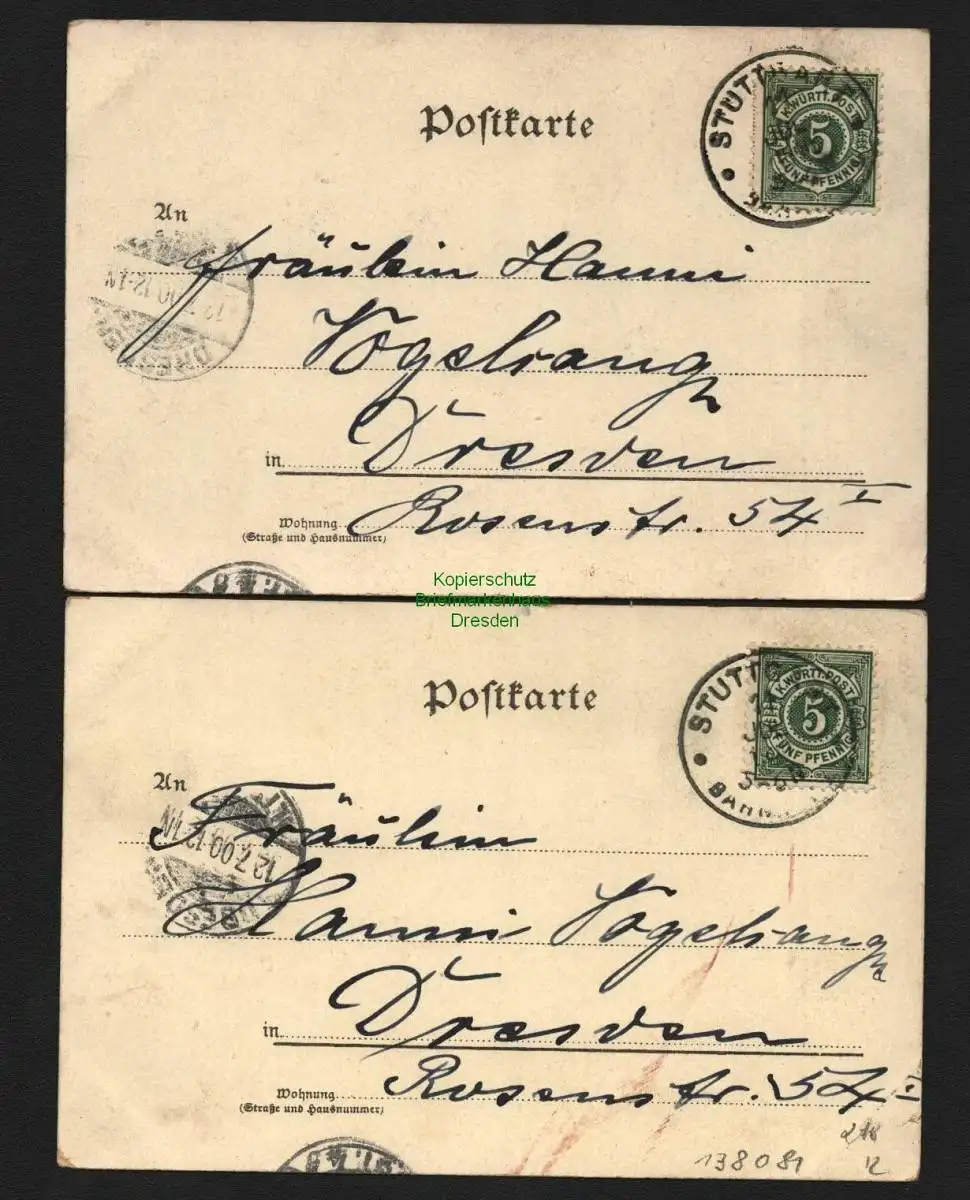 Postkarte
STUTTGART
K.WÜRTT.POST
5
FÜNF PFENNIG
An
Fräulein Hanni
Vogelsang
in Dresden
Wohnung Rosenstr. 54 I
(Straße und Hausnummer)
Kopierschutz
Briefmarkenhaus
Dresden
Postkarte
STUTTG
K.WÜRTT.POST
5
FÜNF PFENNIG
BAHN
An
12.7.00.12-1N
Fräulein
Hanni Vogelsang
in Dresden
Wohnung Rosenstr. 54 I
(Straße und Hausnummer)
138081
12